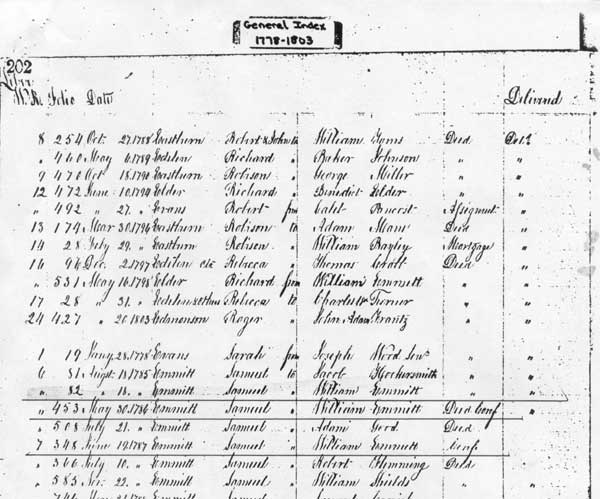 General Index
1778-1803
202
Liber
W.R. Folio Date Delivered
8 254 Oct. 27.1788 Eastburn Robert & John to William Iams Deed Deld
" 460 May 6.1789 Edelen Richard " Baker Johnson " "
9 470 Oct 18.1790 Eastburn Robison " George Miller " "
12 472 June 10.1794 Elder Richard " Benedict Elder " "
" 492 " 27. " Evans Robert from Caleb Assigment "
13 174 Mar 30.1796 Eastburn Robison to Adam Deed "
14 28 July 29. " Eastburn Robison " William Bayley Mortgage "
16 96 Dec. 2.1797 Edelen Rebecca " Thomas Deed "
" 531 May 16.1798 Elder Richard from William Emmett " "
17 28 " 31. " Edelen Rebecca to Charles Turner " "
24 427 " 20 1803 Edmonson Roger " John Adam Frantz "
1 19 Jany. 28.1778 Evans Sarah from Joseph Wood Senr "
6 81 Augst. 18.1785 Emmitt Samuel to Jacob Hockersmith " "
" 82 " 18. " Emmitt Samuel " William Emmitt " "
" 453 May 30.1786 Emmitt Samuel " William Emmitt Deed Conf. "
" 508 July 21. " Emmitt Samuel " Adam Deed
7 348 June 19.1787 Emmitt Samuel " William Emmett Conf. "
" 366 July 10. " Emmitt Samuel " Robert Flemming Deed
" 585 Nov. 22. " Emmitt Samuel " William Shields " "
Samuel